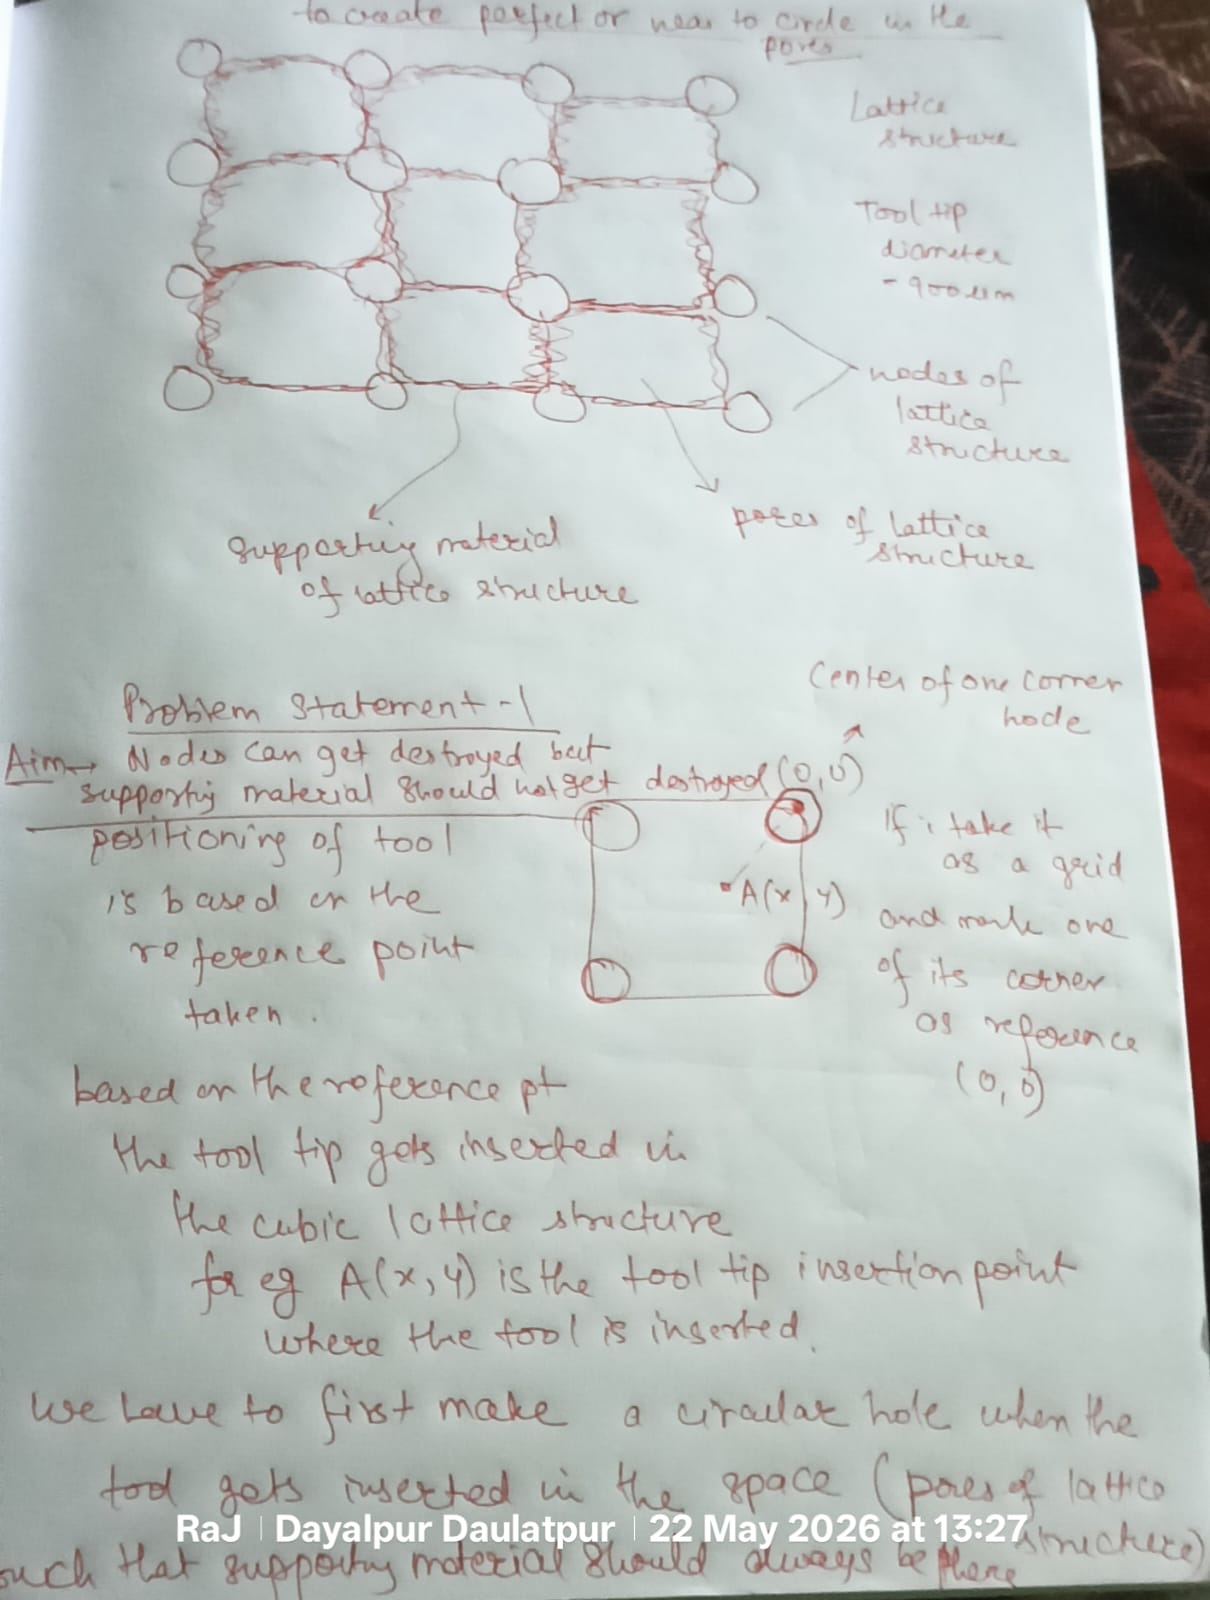 to create perfect or near to circle in the
pores
Lattice
structure
Tool tip
diameter
- 900um
nodes of
lattice
structure
pores of lattice
structure
supporting material
of lattice structure
Problem Statement -1
Aim→ Nodes can get destroyed but
supporting material should not get destroyed
Center of one corner
node
(0,0)
A(x, y)
positioning of tool
is based on the
reference point
taken.
If i take it
as a grid
and mark one
of its corner
as reference
(0,0)
based on the reference pt
the tool tip gets inserted in
the cubic lattice structure
for eg A(x,y) is the tool tip insertion point
where the tool is inserted.
we have to first make a circular hole when the
tool gets inserted in the space (pores of lattice
structure)
such that supporting material should always be there
RaJ | Dayalpur Daulatpur | 22 May 2026 at 13:27